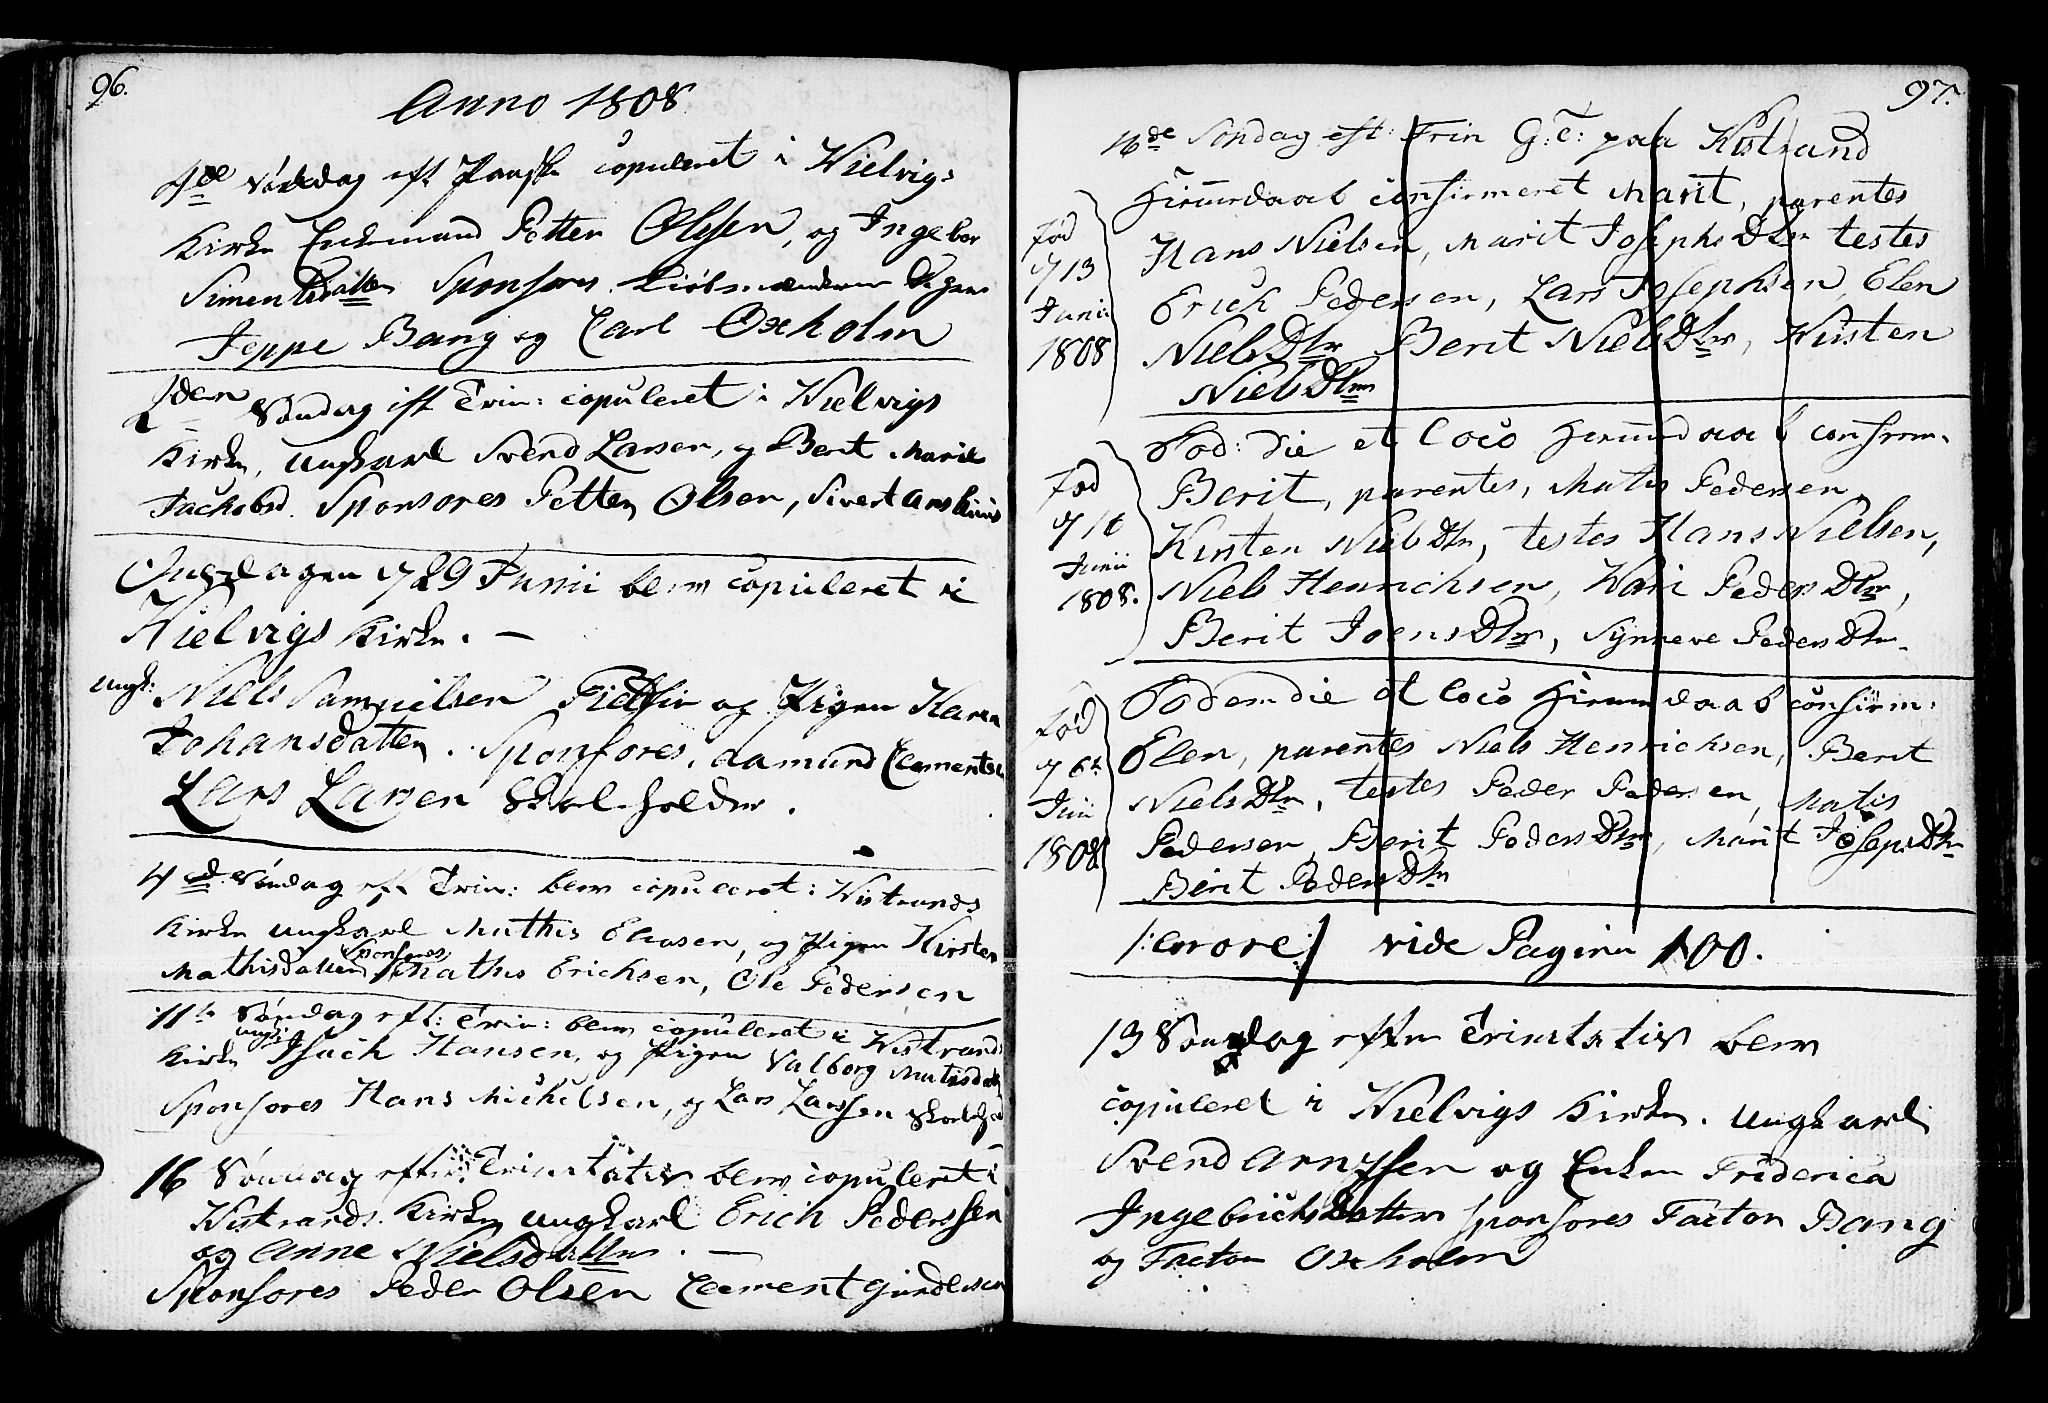 96.
Anno 1808
4de Søndag eft Paaske copuleret i Kielvigs
Kirke Enkemand Petter Olsen, og Ingebor
Simensdatter Sponsores Kiøbmændene
Jeppe Bang og Carl Oxholm
2den Søndag eft Trin: copuleret i Kielvigs
Kirke, Ungkarl Svend Larsen, og Berit Marie
Jachobsd. Sponsores Petter Olsen, Sivert
Onsdagen d 29 Junii blev copuleret i
Kielvigs Kirke. —
Ungk: Niels Samuelsen og Pigen Karen
Johansdatter. Sponsores, Aamund Clementsen
Lars Larsen Skoleholder.
4de Søndag eft Trin: blev copuleret i Kistrands
Kirke Ungkarl Mathis Eliasen, og Pigen Kirsten
Mathisdatter Sponsores Mathis Erichsen, Ole Pedersen
11te Søndag eft: Trin: blev copuleret i Kistrands
Kirke Ungk: Isach Hansen, og Pigen Valborg Matisdatter
Sponsores Hans Michelsen, og Lars Larssen Skoleh
16 Søndag efter Trinitatis blev copuleret i
Kistrands Kirke Ungkarl Erich Pederssen
og Anne Nielsdatter. —
Sponsores Peder Olsen Clement Gundersen
97.
16de Søndag eft: Trin G:T: paa Kistrand
Hiemdaab confirmeret Marit, parentes
Hans Nielsen, Marit JosephsDtr testes
Erich Pedersen, Lars Josephsen, Elen
NielsDtr Berit NielsDtr, Kirsten
NielsDtr
Fød
d 13
Junii
1808
Eod: die et loco Hiemdaab confirm.
Berit, parentes, Matis Pedersen,
Kirsten NielsDtr, testes Hans Nielsen,
Niels Henrichsen, Kari PedersDtr,
Berit JoensDtr, Synneve PedersDtr.
Fød
d 16
Junii
1808.
Eodem die et loco Hiemdaab confirm:
Elen, parentes Niels Henrichsen, Berit
NielsDtr, testes Peder Pedersen, Matis
Pedersen, Berit PedersDtr, Marit JosepsDtr
Berit PedersDtr
Fød
d 6te
Juii
1808
/:errore:/ vide Pagina 100.
13 Søndag efter Trinitatis blev
copuleret i Kielvigs Kirke. Ungkarl
Svend Arnssen og Enken Friderica
Ingebrichtsdatter Sponsores Factor Bang
og Factor Oxholm